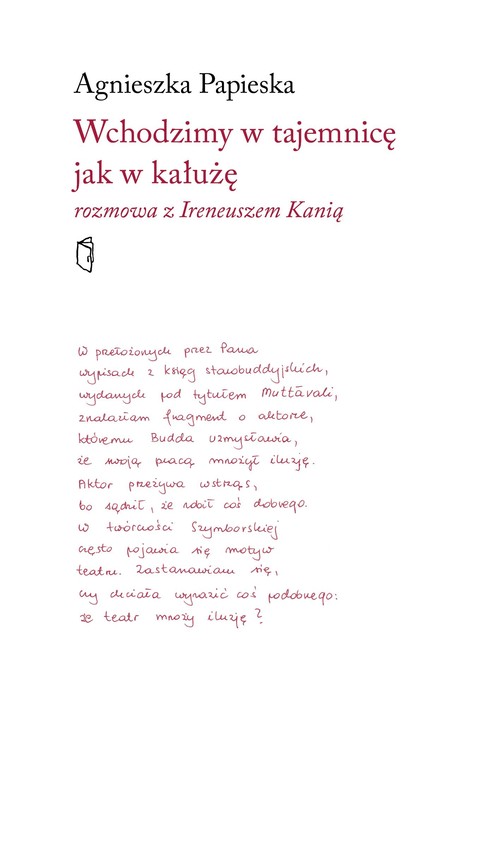 Agnieszka Papieska
Wchodzimy w tajemnicę
jak w kałużę
rozmowa z Ireneuszem Kanią
W przełożonych przez Pana
wypisach z ksiąg starobuddyjskich,
wydanych pod tytułem Muttāvali,
znalazłam fragment o aktorze,
któremu Budda uzmysławia,
że swoją pracą mnożył iluzję.
Aktor przeżywa wstrząs,
bo sądził, że robił coś dobrego.
W twórczości Szymborskiej
często pojawia się motyw
teatru. Zastanawiam się,
czy chciała wyrazić coś podobnego:
że teatr mnoży iluzję?